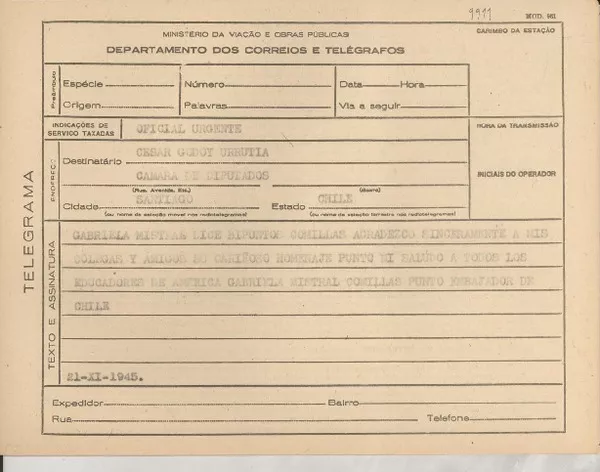 9991
MOD. 92
MINISTÉRIO DA VIAÇÃO E OBRAS PÚBLICAS
DEPARTAMENTO DOS CORREIOS E TELÉGRAFOS
CARIMBO DA ESTAÇÃO
Preâmbulo
Espécie
Número
Data
Hora
Origem
Palavras
Via a seguir
INDICAÇÕES DE SERVIÇO TAXADAS
OFICIAL URGENTE
HORA DA TRANSMISSÃO
ENDEREÇO
CESAR GODOY URRUTIA
Destinatário
CAMARA DE DIPUTADOS
INICIAIS DO OPERADOR
(Rua, Avenida, Etc.)
(Bairro)
Cidade SANTIAGO Estado CHILE
(ou nome da estação móvel nos radiotelegramas)
(ou nome da estação terrestre nos radiotelegramas)
TELEGRAMA
TEXTO E ASSINATURA
GABRIELA MISTRAL DICE DIPUNTOS COMILLAS AGRADEZCO SINCERAMENTE A MIS
COLEGAS Y AMIGOS SU CARIÑOSO HOMENAJE PUNTO MI SALUDO A TODOS LOS
EDUCADORES DE AMERICA GABRIELA MISTRAL COMILLAS PUNTO EMBAJADOR DE
CHILE
21-XI-1945.
Expedidor
Bairro
Rua
Telefone